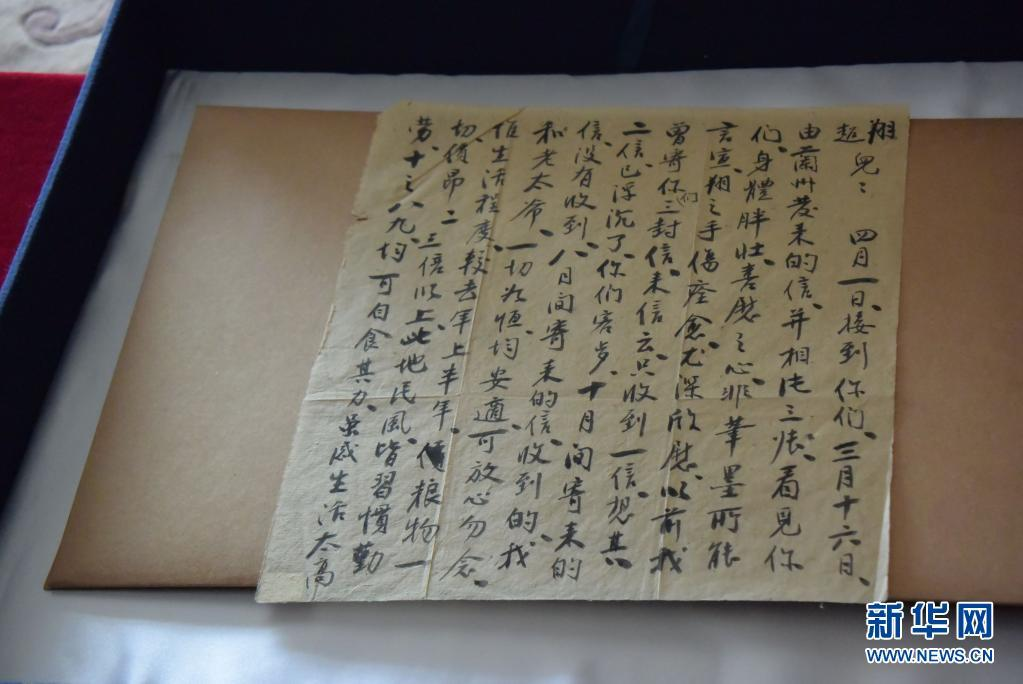 翔
超兒：四月一日、接到你们、三月十六日、
由蘭州发来的信、并相片三张、看見你
们、身體胖壮、喜慰之心、非筆墨所能
言宣、翔之手傷痊愈、尤深欣慰、以前我
曾寄你们三封信、来信云、只收到一信、想其
二信已浮沉了、你们客岁、十月间寄来的
信、没有收到、八月间寄来的信、收到的、我
和老太爷、一切如恒、均安適、可放心勿念、
惟生活程度、較去年上半年、粮物一
切、價昂二三倍以上、此地民風、皆習慣勤
劳、十之八九、均可自食其力、虽感生活太高
新华网
WWW.NEWS.CN